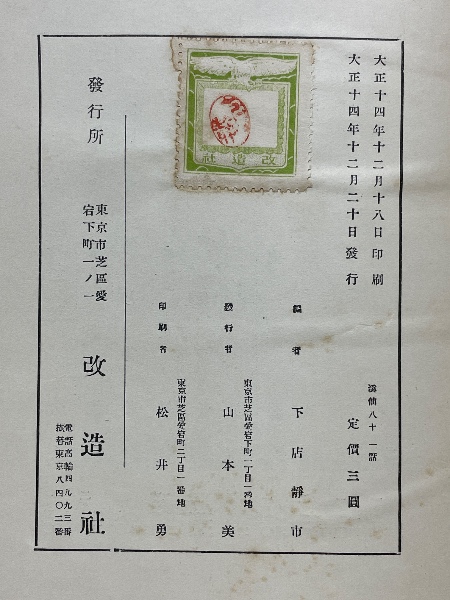 大正十四年十二月十八日印刷
大正十四年十二月二十日發行
漫俳八十一話
定價三圓
編者 下店靜市
東京市芝區愛宕下町一丁目一番地
發行者 山本美
東京市芝區愛宕町二丁目一番地
印刷者 松井勇
發行所
東京市芝區愛
宕下町一ノ一
改造社
電話高輪四九九三番
振替東京八四〇二番
社造改